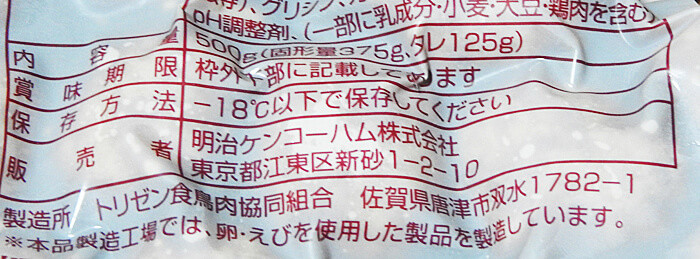 存)、グリシン、
pH調整剤、(一部に乳成分・小麦・大豆・鶏肉を含む)
内容量 500g(固形量375g、タレ125g)
賞味期限 枠外下部に記載してあります
保存方法 −18℃以下で保存してください
販売者 明治ケンコーハム株式会社
東京都江東区新砂1-2-10
製造所 トリゼン食鳥肉協同組合 佐賀県唐津市双水1782-1
※本品製造工場では、卵・えびを使用した製品を製造しています。